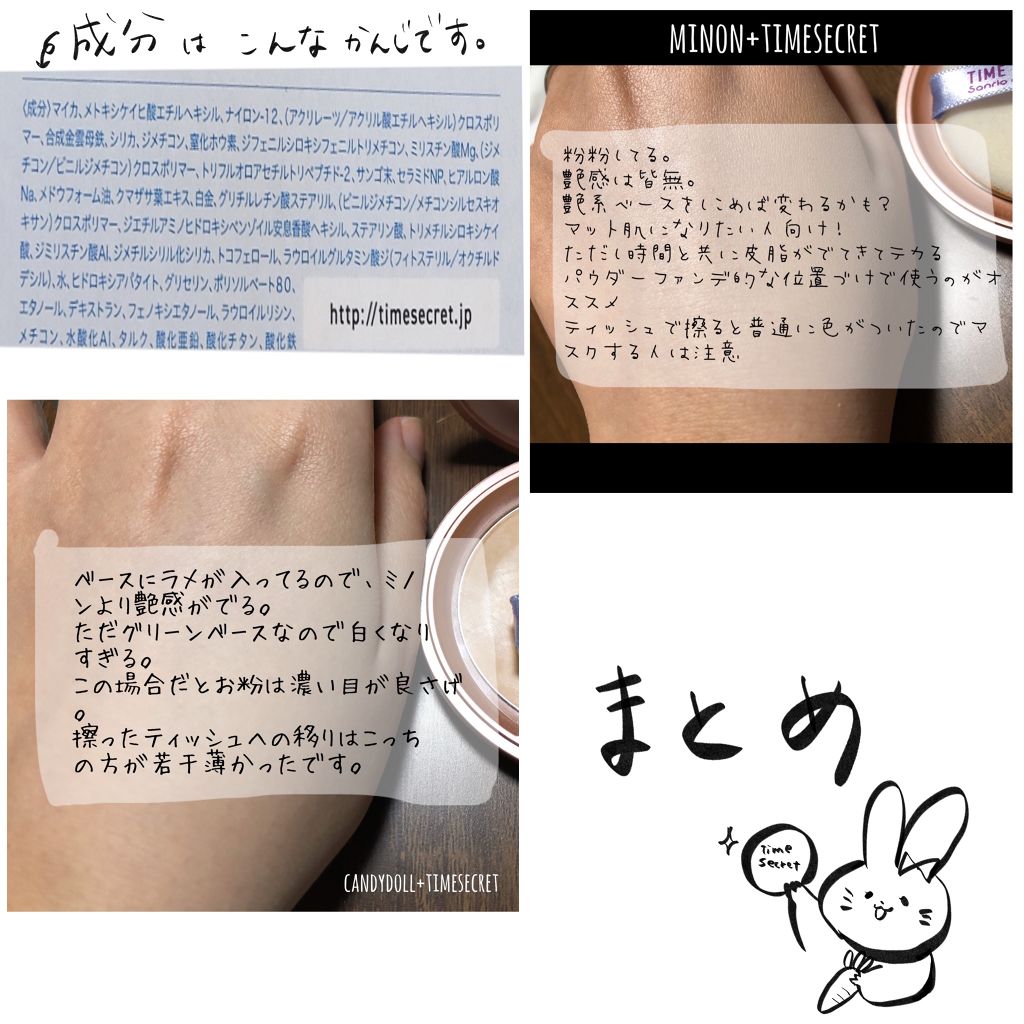 成分は こんな かんじです。
〈成分〉マイカ、メトキシケイヒ酸エチルヘキシル、ナイロン-12、(アクリレーツ/アクリル酸エチルヘキシル)クロスポリ
マー、合成金雲母鉄、シリカ、ジメチコン、窒化ホウ素、ジフェニルシロキシフェニルトリメチコン、ミリスチン酸Mg、(ジメ
チコン/ビニルジメチコン)クロスポリマー、トリフルオロアセチルトリペプチド-2、サンゴ末、セラミドNP、ヒアルロン酸
Na、メドウフォーム油、クマザサ葉エキス、白金、グリチルレチン酸ステアリル、(ビニルジメチコン/メチコンシルセスキオ
キサン)クロスポリマー、ジエチルアミノヒドロキシベンゾイル安息香酸ヘキシル、ステアリン酸、トリメチルシロキシケイ
酸、ジミリスチン酸Al、ジメチルシリル化シリカ、トコフェロール、ラウロイルグルタミン酸ジ(フィトステリル/オクチルド
デシル)、水、ヒドロキシアパタイト、グリセリン、ポリソルベート80、
エタノール、デキストラン、フェノキシエタノール、ラウロイルリシン、
メチコン、水酸化Al、タルク、酸化亜鉛、酸化チタン、酸化鉄
http://timesecret.jp
MINON+TIMESECRET
TIME
Sanrio
粉粉してる。
艶感は皆無。
艶系ベースをしこめば変わるかも?
マット肌になりたい人向け!
ただし時間と共に皮脂がでてきてテカる
パウダーファンデ的な位置づけで使うのがオ
ススメ
ティッシュで擦ると普通に色がついたのでマ
スクする人は注意
ベースにラメが入ってるので、ミノ
ンより艶感がでる。
ただグリーンベースなので白くなり
すぎる。
この場合だとお粉は濃い目が良さげ
。
擦ったティッシュへの移りはこっち
の方が若干薄かったです。
CANDYDOLL+TIMESECRET
まとめ
Time
Secret